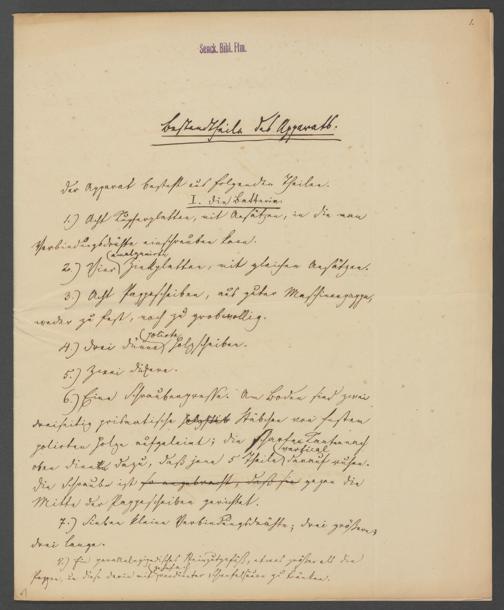 1.
Senck. Bibl. Ffm.
Bestandtheile des Apparats.
Der Apparat besteht aus folgenden Theilen.
I. Die Batterie.
1.) Acht Kupferplatten, mit Ansätzen, in die man
Verbindungsdrähte einschrauben kann.
amalgamirte
2.) Vier Zinkplatten, mit gleichen Ansätzen.
3.) Acht Pappescheiben, aus guter Maschinenpappe,
weder zu fest, noch zu grobwollig.
polirte
4.) Drei dünne Holzscheiben.
5.) Zwei dickere.
6.) Eine Schraubenpresse. Am Boden sind zwei
dreiseitig prismatische Stäbchen von festem
polirten Holze aufgeleimt; die scharfen Kanten nach
vertical
oben dienen dazu, daß jene 5 Theile darauf ruhen.
Die Schraube ist so angebracht, daß sie gegen die
Mitte der Pappescheiben gerichtet.
7.) Sieben kleine Verbindungsdrähte; drei größere;
drei lange.
8.) Ein parallelepipedisches Steingutgefäß, etwas größer als die
Pappen, um diese darin mit verdünnter Schwefelsäure zu tränken.